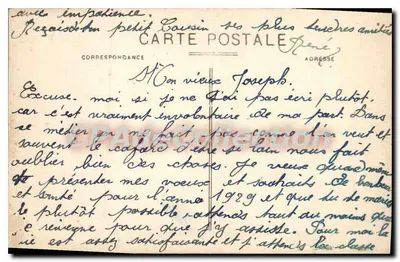 avec impatience.
Reçois de ton petit Cousin ses plus tendres amitiés
René
CARTE POSTALE
CORRESPONDANCE
ADRESSE
Mon vieux Joseph.
Excuse moi si je n'ai pas écri plutot.
car c'est vraiment involontaire de ma part. Dans
se métier la on ne fait pas comme l'on veut et
souvent le cafard d'être si loin nous fait
oublier bien des choses. Je veux quand même
te présenter mes voeux et souhaits de bonheur
et santé pour l'année 1929 et que tu te maries
le plutôt possible, attends tout au moins que
je revienne pour que j'y assiste. Pour moi la
vie est assez satisfaisante et j'attends la classe